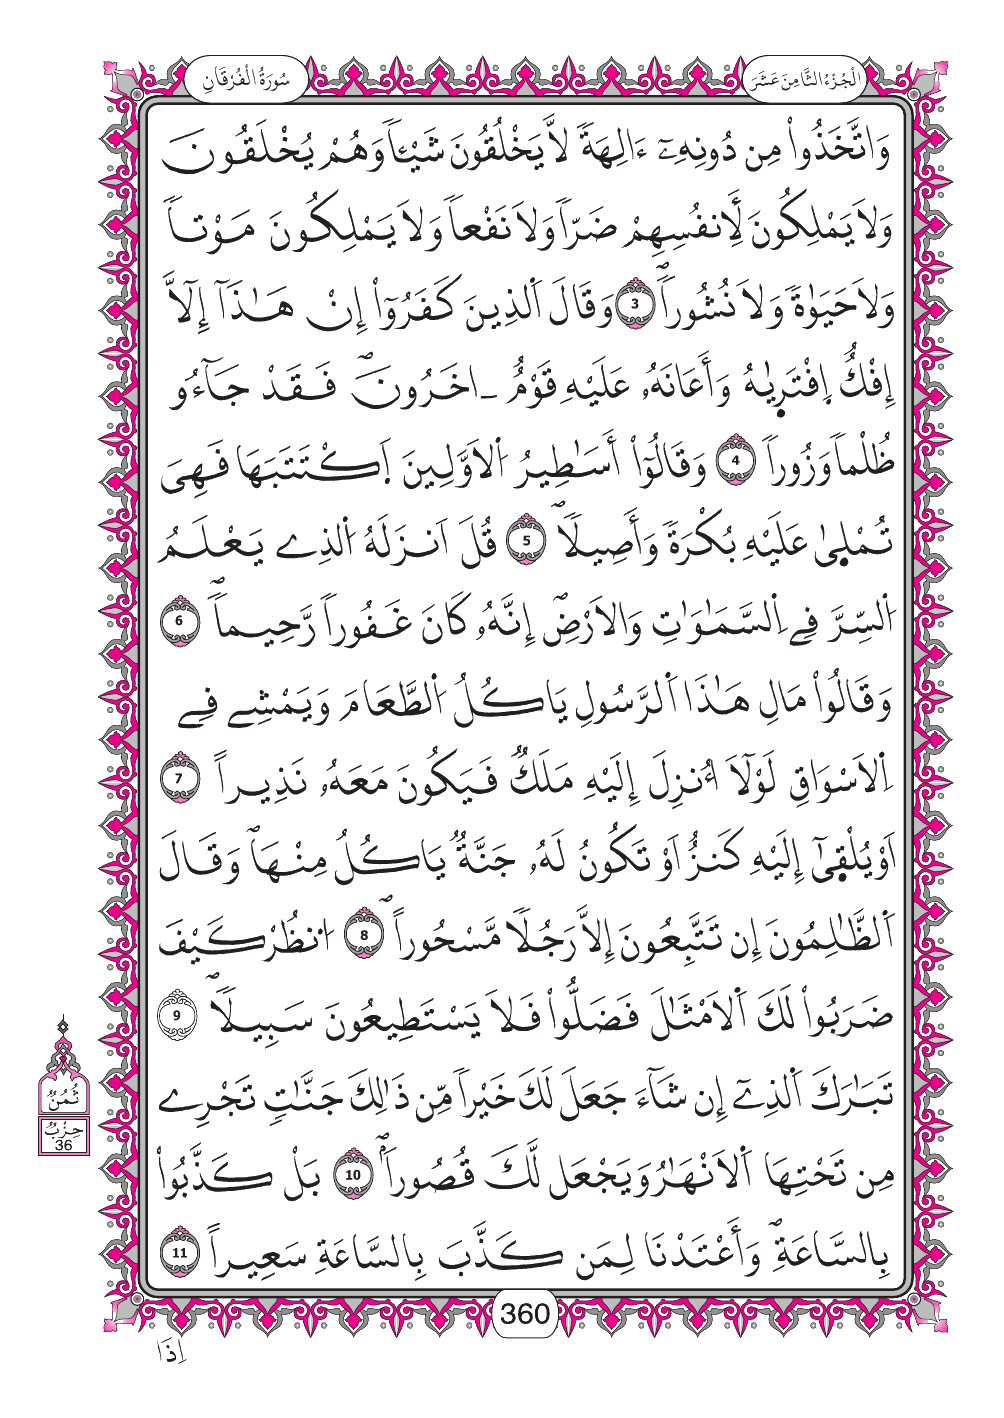 الْجُزْءُ الثَّامِنَ عَشَرَ
سُورَةُ الْفُرْقَانِ
وَاتَّخَذُواْ مِن دُونِهِۦٓ ءَالِهَةٗ لَّا يَخْلُقُونَ شَيْـٔاٗ وَهُمْ يُخْلَقُونَ
وَلَا يَمْلِكُونَ لِأَنفُسِهِمْ ضَرّاٗ وَلَا نَفْعاٗ وَلَا يَمْلِكُونَ مَوْتاٗ
وَلَا حَيَوٰةٗ وَلَا نُشُوراٗۖ 3 وَقَالَ اَلذِينَ كَفَرُوٓاْ إِنْ هَٰذَآ إِلَّآ
إِفْكٌ اِفْتَرِيٰهُ وَأَعَانَهُۥ عَلَيْهِ قَوْمٌ ـ اخَرُونَۖ فَقَدْ جَآءُو
ظُلْماٗ وَزُوراٗ 4 وَقَالُوٓاْ أَسَٰطِيرُ اُلَاوَّلِينَ اَكْتَتَبَهَا فَهِيَ
تُمْلِيٰ عَلَيْهِ بُكْرَةٗ وَأَصِيلاٗۖ 5 قُلَ اَنزَلَهُ اُلذِے يَعْلَمُ
اُلسِّرَّ فِے اِلسَّمَٰوَٰتِ وَالَارْضِۖ إِنَّهُۥ كَانَ غَفُوراٗ رَّحِيماٗۖ 6
وَقَالُواْ مَالِ هَٰذَا اَلرَّسُولِ يَاكُلُ اُلطَّعَامَ وَيَمْشِے فِے
اِلَاسْوَاقِ لَوْلَآ أُنزِلَ إِلَيْهِ مَلَكٌ فَيَكُونَ مَعَهُۥ نَذِيراً 7
اَوْ يُلْقِيٰٓ إِلَيْهِ كَنزٌ اَوْ تَكُونُ لَهُۥ جَنَّةٌ يَاكُلُ مِنْهَاۖ وَقَالَ
اَلظَّٰلِمُونَ إِن تَتَّبِعُونَ إِلَّا رَجُلاٗ مَّسْحُوراًۖ 8 اُنظُرْ كَيْفَ
ضَرَبُواْ لَكَ اَلَامْثَٰلَ فَضَلُّواْ فَلَا يَسْتَطِيعُونَ سَبِيلاٗۖ 9
تَبَٰرَكَ اَلذِےٓ إِن شَآءَ جَعَلَ لَكَ خَيْراٗ مِّن ذَٰلِكَ جَنَّٰتٖ تَجْرِے
مِن تَحْتِهَا اَلَانْهَٰرُ وَيَجْعَل لَّكَ قُصُوراَۢۖ 10 بَلْ كَذَّبُواْ
بِالسَّاعَةِۖ وَأَعْتَدْنَا لِمَن كَذَّبَ بِالسَّاعَةِ سَعِيراً 11
ثُمُنٌ
حِزْبٌ
36
360
اِذَا